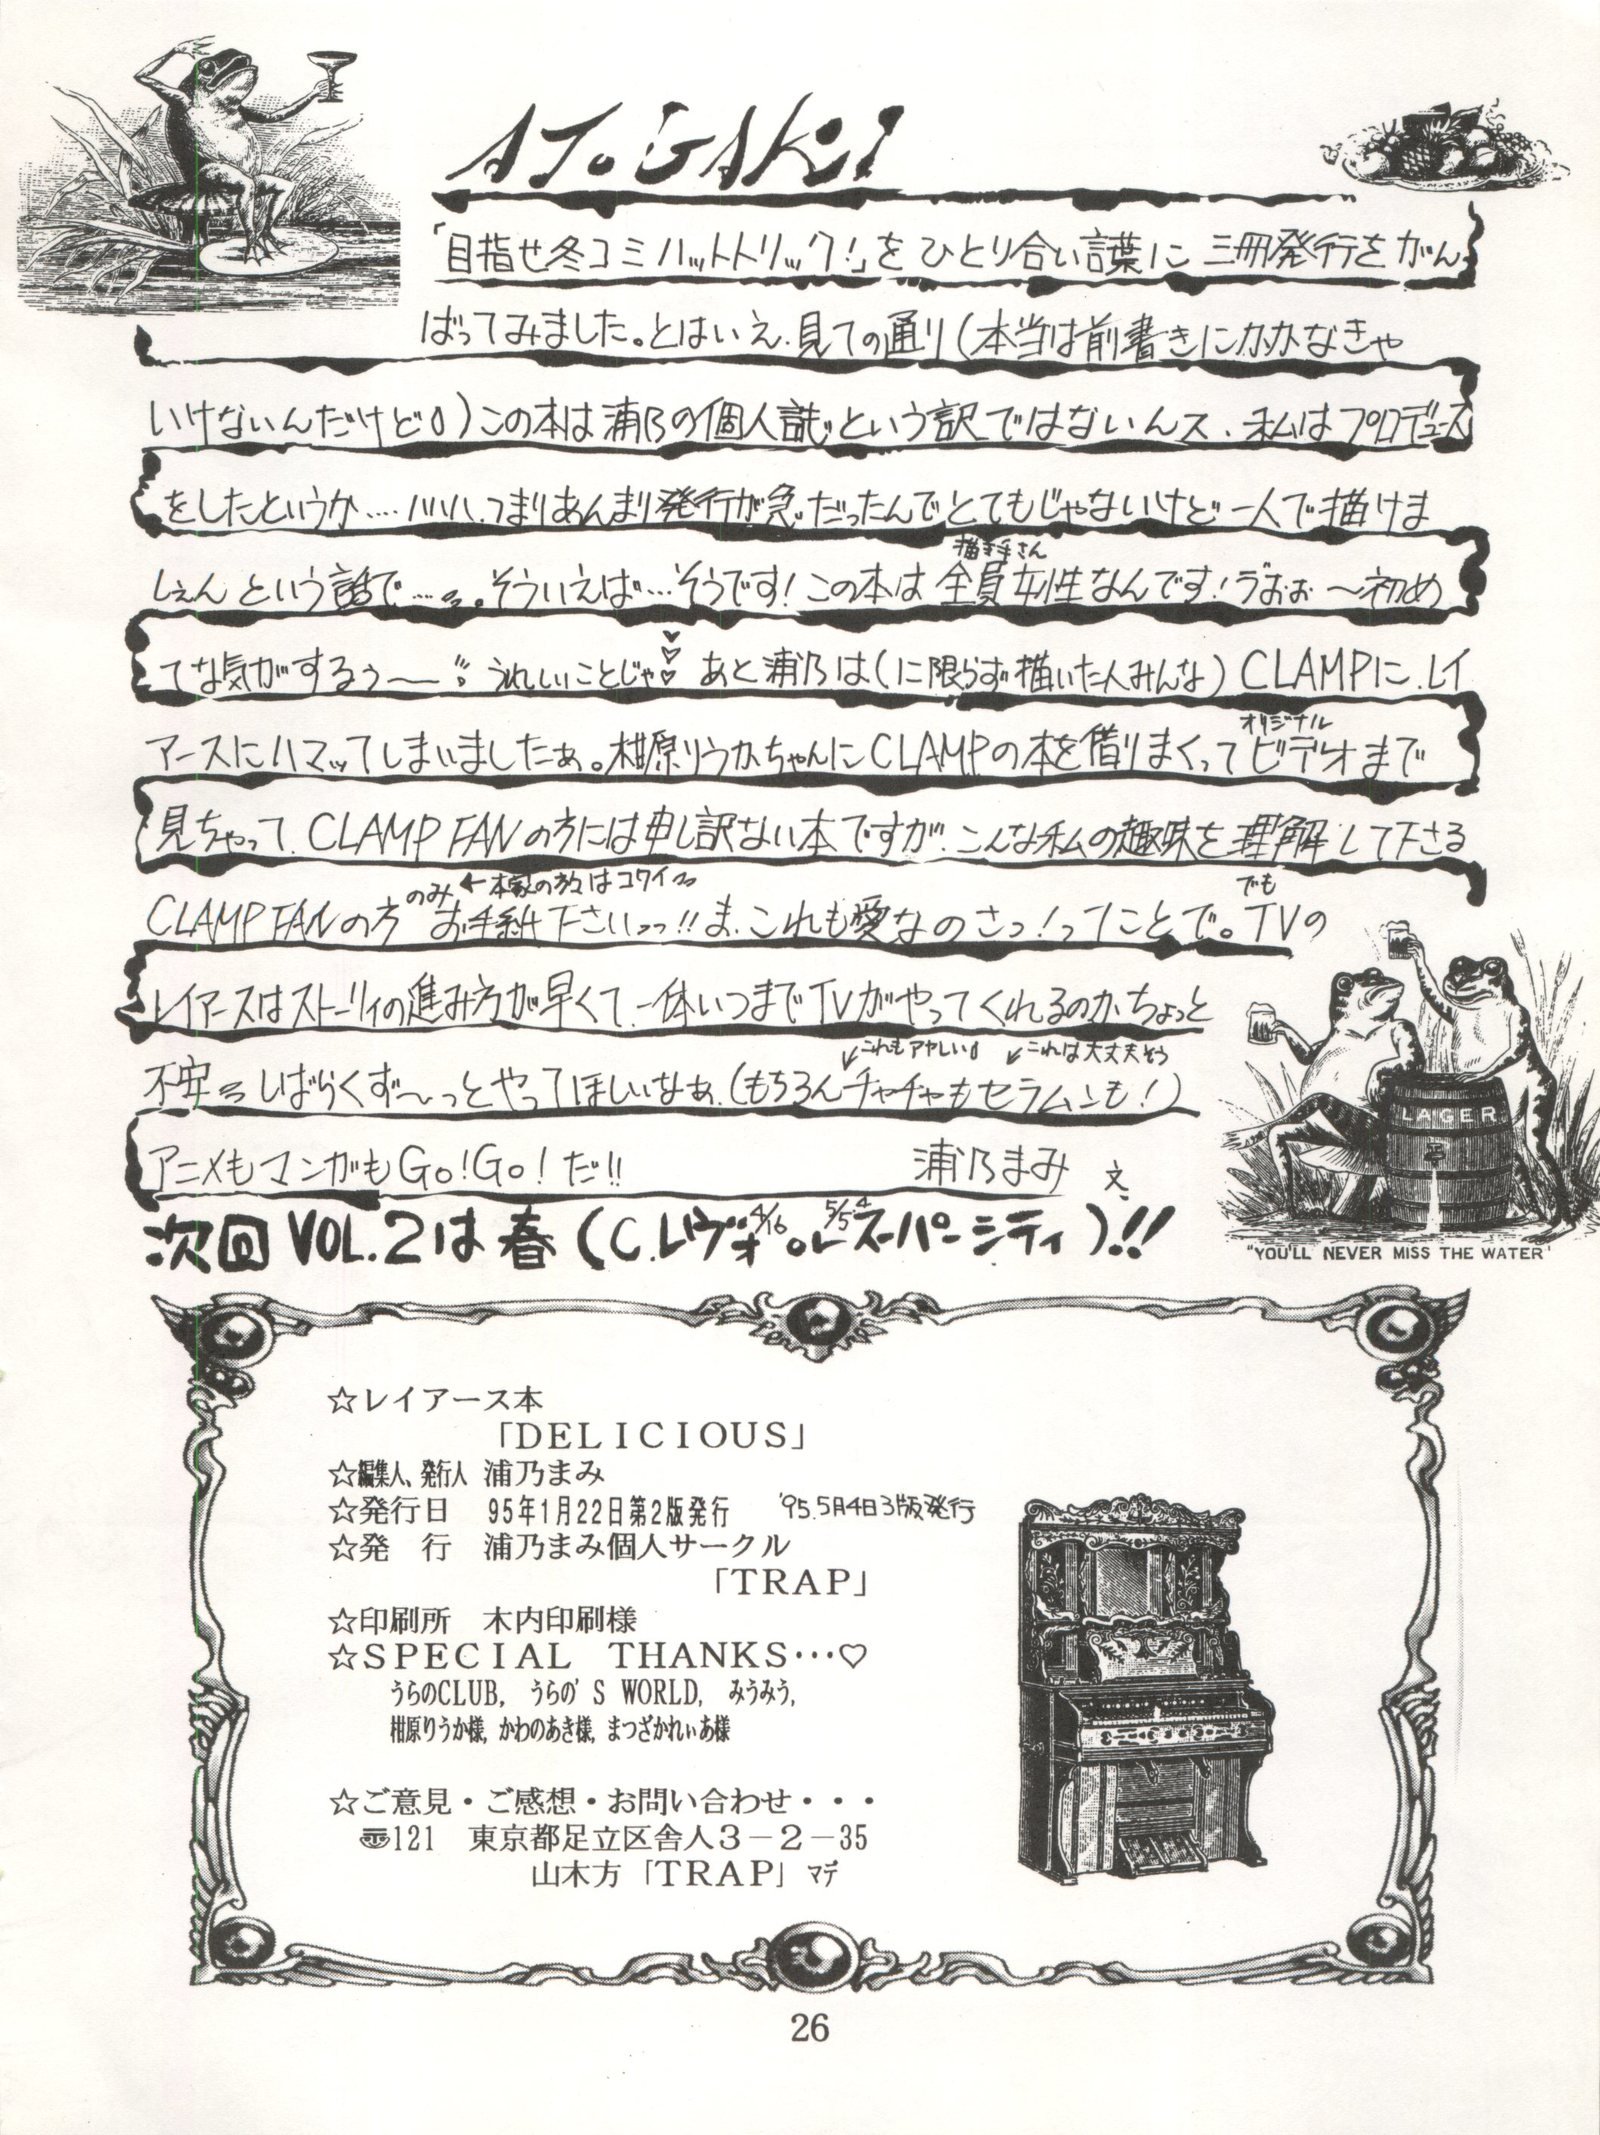 ATOGAKI
「目指せ冬コミハットトリック!」をひとり合い言葉に三冊発行をがん
ばってみました。とはいえ、見ての通り(本当は前書きにかかなきゃ
いけないんだけど)この本は浦乃の個人誌という訳ではないんス、私はプロデュース
をしたというか…ハハハ、つまりあんまり発行が急だったんでとてもじゃないけど一人で描けま
しぇんという話で…。そういえば…そうです!この本は全員女性なんです!うおぉ〜初め
描き手さん
てな気がするぅ〜 うれしいことじゃ♡♡ あと浦乃は(に限らず描いた人みんな)CLAMPに、レイ
アースにハマッてしまいましたぁ。柑原りうかちゃんにCLAMPの本を借りまくってビデオまで
オリジナル
見ちゃって、CLAMP FANの方には申し訳ない本ですが、こんな私の趣味を理解して下さる
CLAMP FANの方のみお手紙下さいっっ!!ま、これも愛なのさっ!ってことで。TVの
←本家の方々はコワイ
でも
レイアースはストーリィの進み方が早くて、一体いつまでTVがやってくれるのか、ちょっと
不安 しばらくず〜っとやってほしいなぁ、(もちろんチャチャもセラムンも!)
↙これもアヤしい ↙これは大丈夫そう
アニメもマンガもGo!Go!だ!! 浦乃まみ
次回VOL.2は春(C.レヴォ 4/16 or スーパーシティ 5/5 4)!!
LAGER
"YOU'LL NEVER MISS THE WATER'
☆レイアース本
「DELICIOUS」
☆編集人、発行人 浦乃まみ
☆発行日 95年1月22日第2版発行 '95.5月4日3版発行
☆発 行 浦乃まみ個人サークル
「TRAP」
☆印刷所 木内印刷様
☆SPECIAL THANKS…♡
うらのCLUB, うらの'S WORLD, みうみう,
柑原りうか様, かわのあき様, まつざかれぃあ様
☆ご意見・ご感想・お問い合わせ・・・
〠121 東京都足立区舎人3−2−35
山木方「TRAP」マデ
26